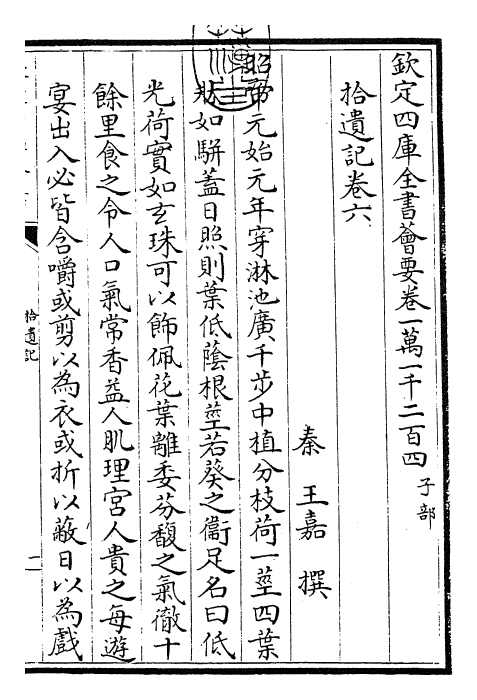 欽定四庫全書薈要卷一萬一千二百四 子部
拾遺記卷六
秦 王嘉 撰
昭帝元始元年穿淋池廣千步中植分枝荷一莖四葉
狀如駢蓋日照則葉低蔭根莖若葵之衞足名曰低
光荷實如玄珠可以飾佩花葉離委芬馥之氣徹十
餘里食之令人口氣常香益人肌理宮人貴之每遊
宴出入必皆含嚼或剪以為衣或折以蔽日以為戲
拾遺記